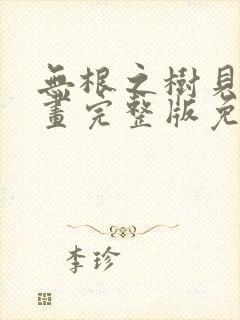 無根之樹見
畫完整版免
李珍